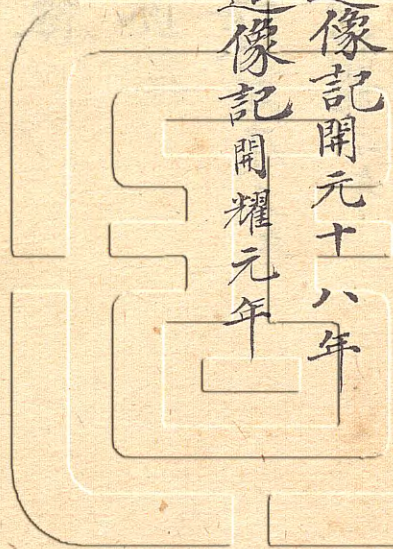 造像記開元十八年
造像記開耀元年